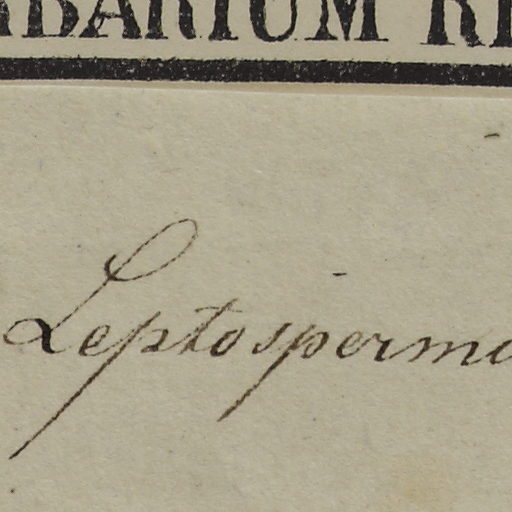 RBARIUM RE
Leptosperma